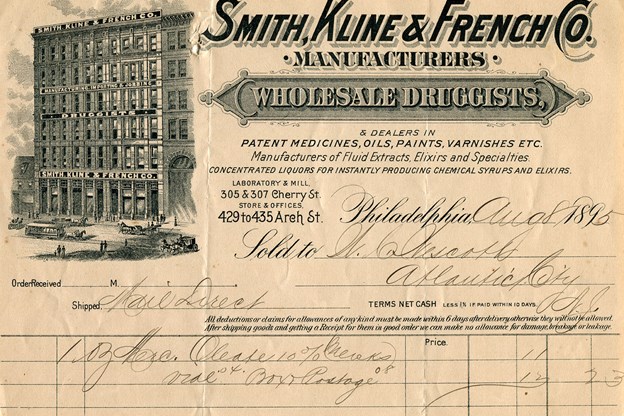 SMITH, KLINE & FRENCH CO.
SMITH KLINE & FRENCH CO.
MANUFACTURERS
MANUFACTURING, IMPORTING & JOBBING
DRUGGISTS
SMITH KLINE & FRENCH CO.
WHOLESALE DRUGGISTS,
& DEALERS IN
PATENT MEDICINES, OILS, PAINTS, VARNISHES ETC.
Manufacturers of Fluid Extracts, Elixirs and Specialties.
CONCENTRATED LIQUORS FOR INSTANTLY PRODUCING CHEMICAL SYRUPS AND ELIXIRS.
LABORATORY & MILL,
305 & 307 Cherry St.
STORE & OFFICES,
429 to 435 Arch St.
Philadelphia, Aug 8 1895
Sold to W.
Atlantic City
Order Received M.
N.J.
Shipped Mail Direct
TERMS NET CASH LESS 1% IF PAID WITHIN 10 DAYS.
All deductions or claims for allowances of any kind must be made within 6 days after delivery otherwise they will not be allowed.
After shipping goods and getting a Receipt for them in good order we can make no allowance for damage, breakage or leakage.
Price.
1 oz Merc. Oleate 10% 11
vial 04 Box & Postage 08 12 23